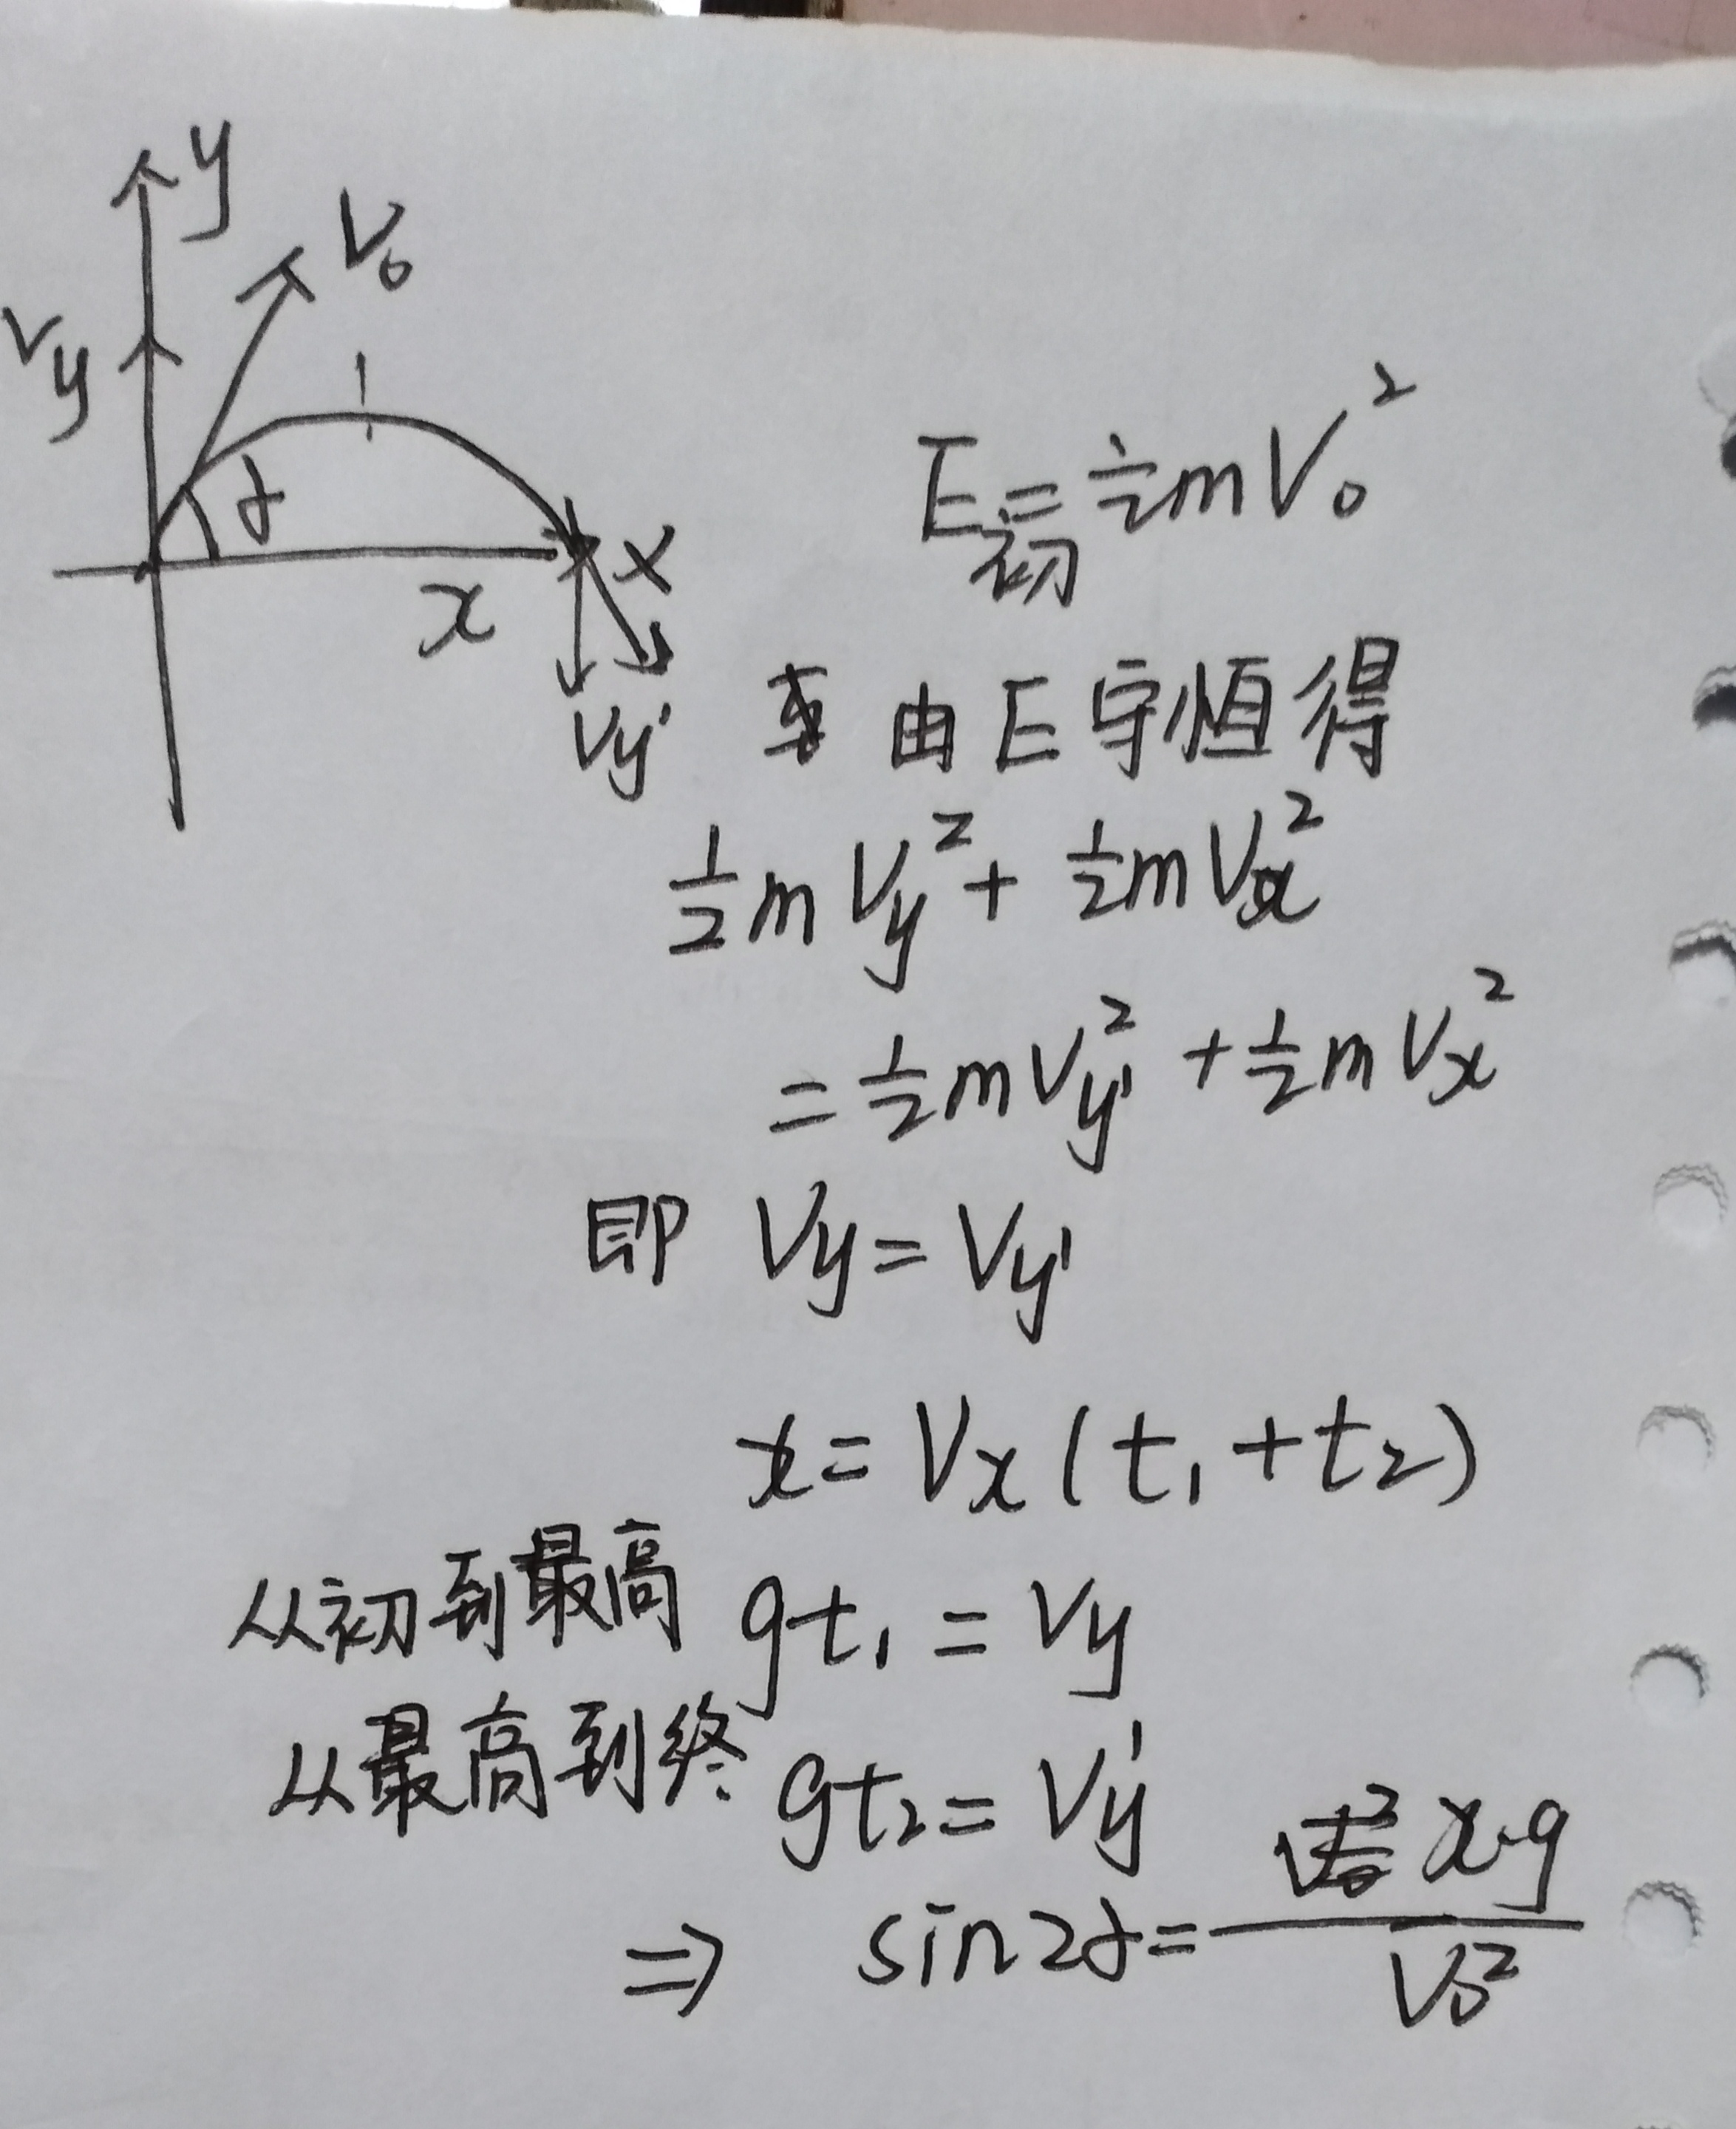 y
V₀
Vy
α
x
x
Vy'
E初=½mV₀²
由E守恒得
½mVy²+½mVx²
=½mVy'²+½mVx²
即 Vy=Vy'
x=Vx(t₁+t₂)
从初到最高 gt₁=Vy
从最高到终 gt₂=Vy'
⇒ sin2α=x·g/V₀²